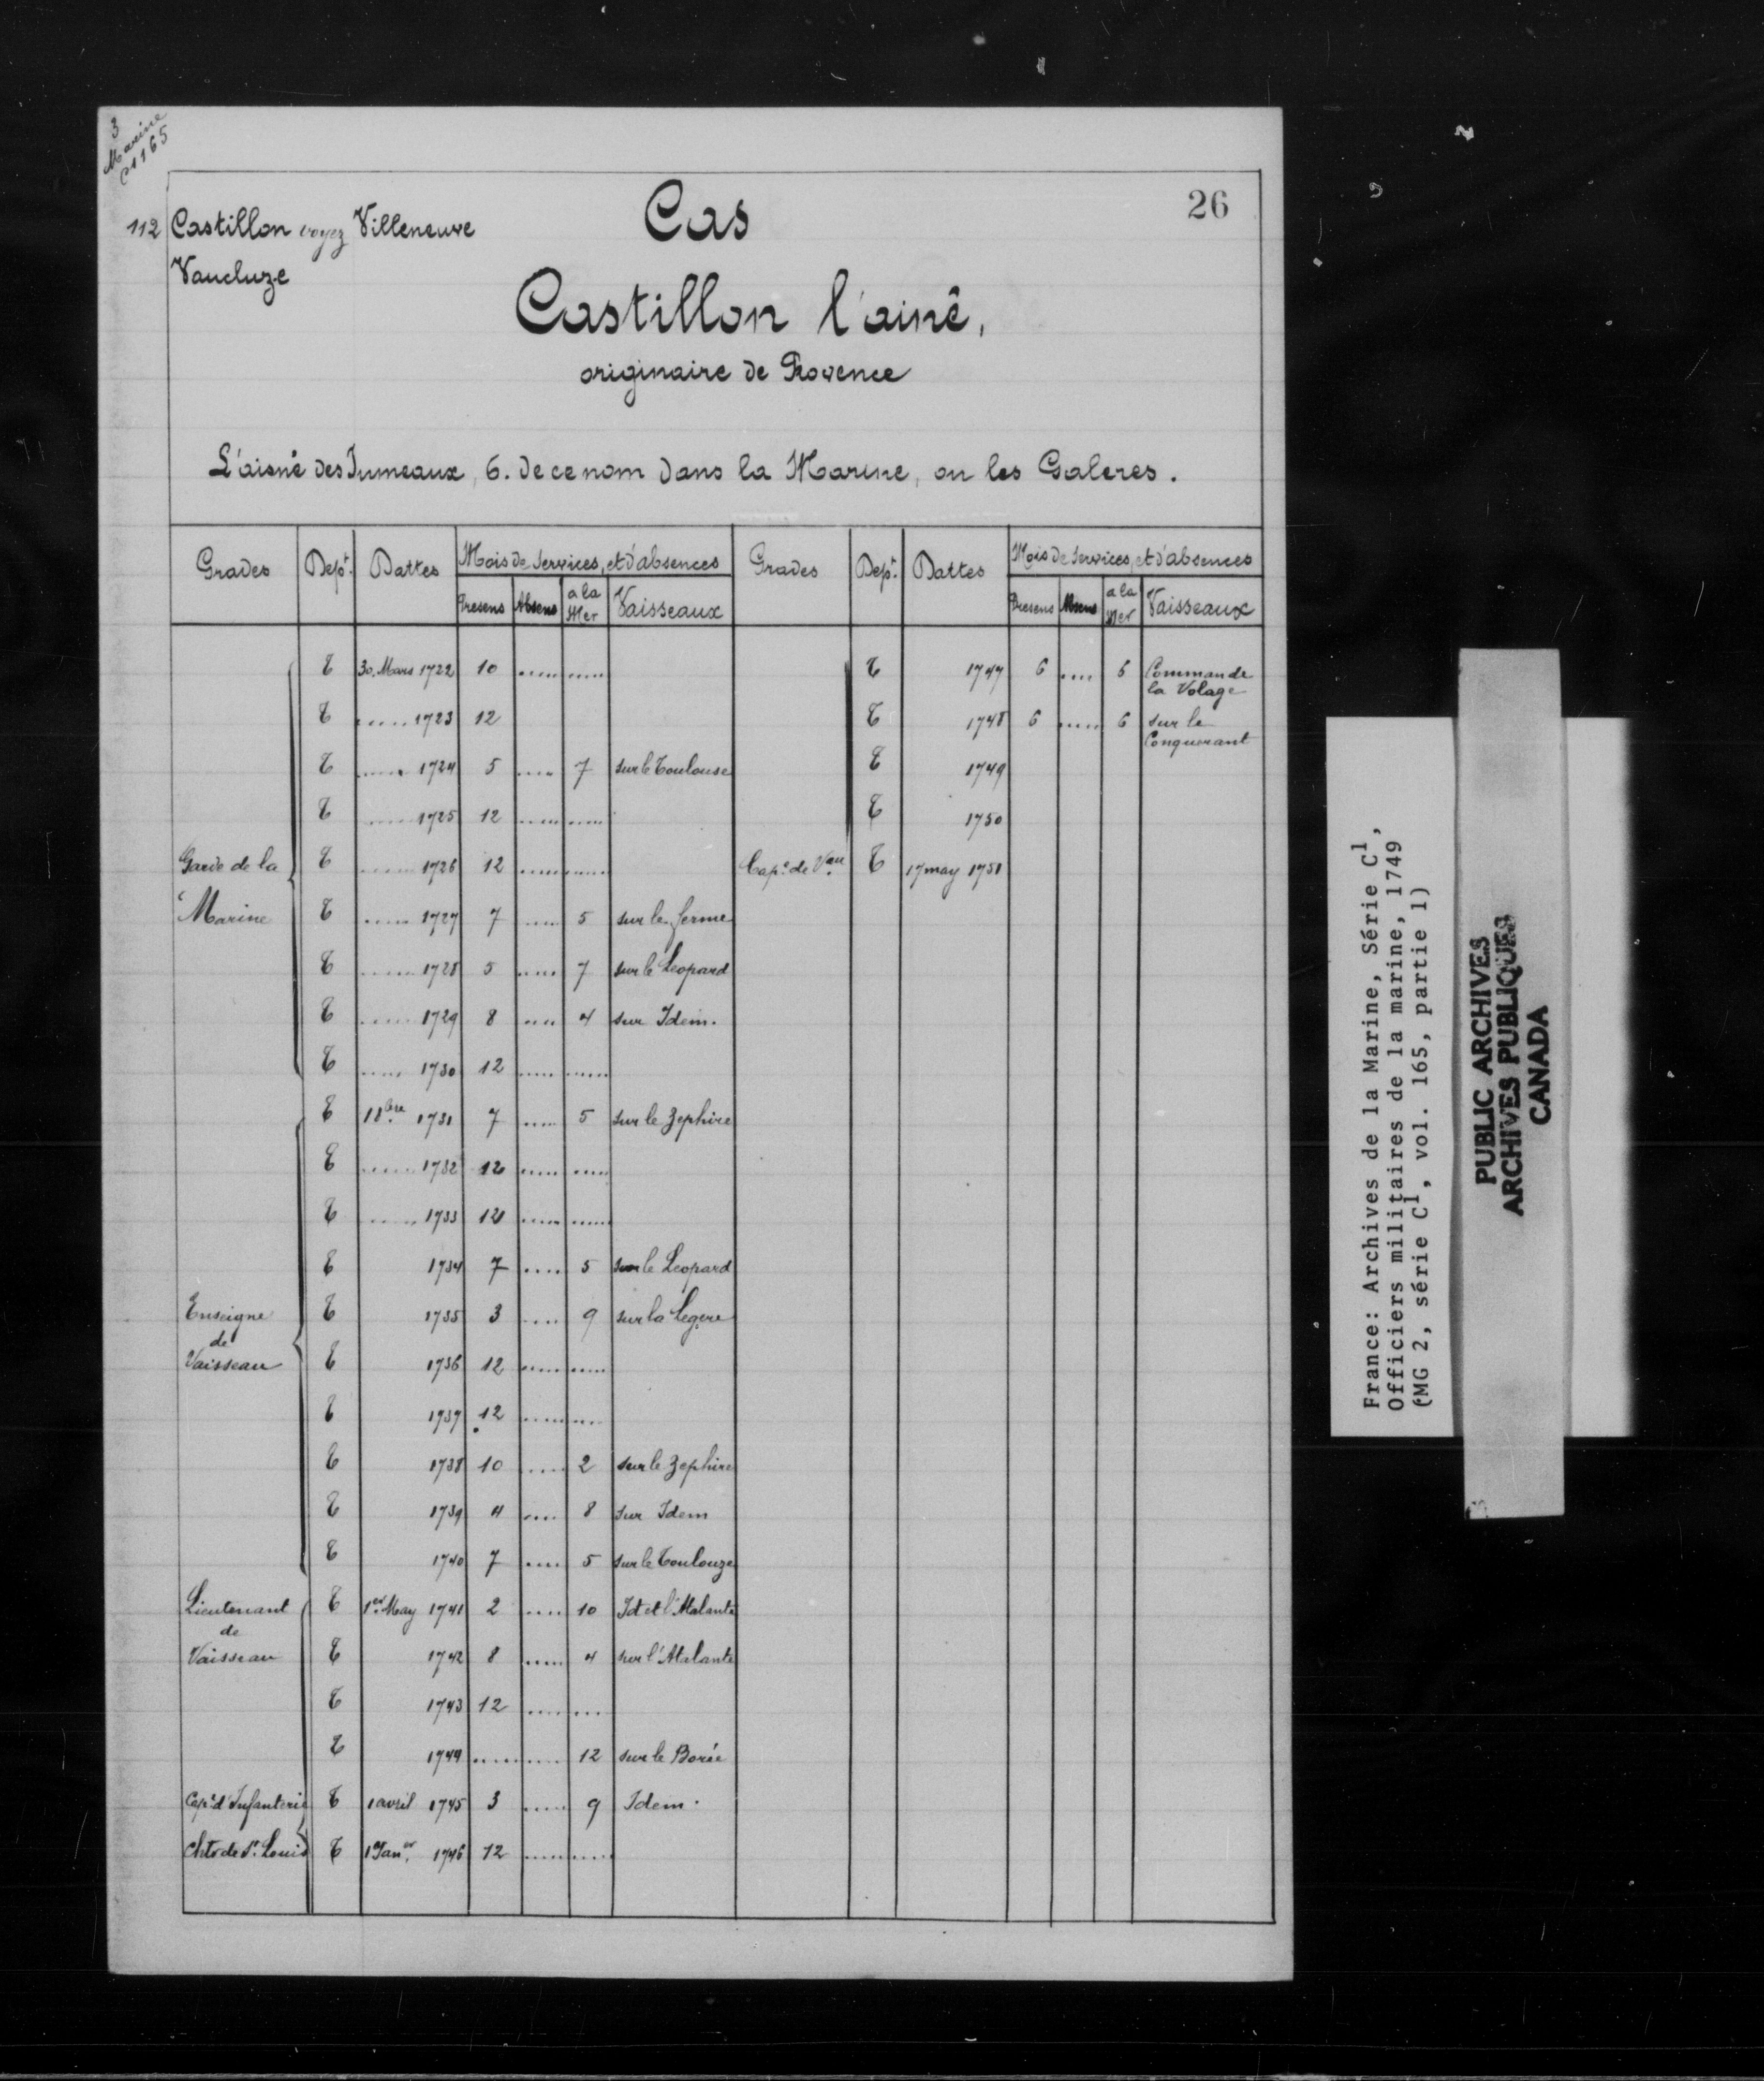 3
Marine
C1 165
26
112 Castillon voyez Villeneuve
Vaucluze
Cas
Castillon l'ainê,
originaire de Provence
L'aisné des Jumeaux, 6. de ce nom dans la Marine, ou les Galeres.
Grades Dept. Dattes Mois de services, et d'absences Grades Dept. Dattes Mois de services, et d'absences
Presens Absens a la Mer Vaisseaux Presens Absens a la Mer Vaisseaux
T 30. Mars 1722 10 ..... ..... T 1747 6 .... 6 Commande la Volage
T ..... 1723 12 T 1748 6 ..... 6 sur le Conquerant
T ...... 1724 5 .... 7 sur le Toulouse T 1749
T ...... 1725 12 ..... ..... T 1750
Garde de la T ...... 1726 12 ..... ..... Capne de Vau. T 17 may 1751
Marine T ..... 1727 7 .... 5 sur le ferme
T ...... 1728 5 ..... 7 sur le Leopard
T ...... 1729 8 .... 4 sur Idem.
T ..... 1730 12 ..... ......
T 1 8bre 1731 7 ..... 5 sur le Zephire
T ...... 1732 12 ..... .....
T ...... 1733 12 ..... ......
T 1734 7 .... 5 sur le Leopard
Enseigne T 1735 3 .... 9 sur la Legere
de
Vaisseau T 1736 12 ..... .....
T 1737 12 ..... ....
T 1738 10 ..... 2 sur le Zephire
T 1739 4 .... 8 sur Idem
T 1740 7 .... 5 sur le Toulouze
Lieutenant T 1er May 1741 2 .... 10 Id et l'Atalante
de
Vaisseau T 1742 8 ..... 4 sur l'Atalante
T 1743 12 ..... ...
T 1744 ..... ..... 12 sur le Borée
Capne d'Infanterie T 1 avril 1745 3 ..... 9 Idem.
de St. Louis T 1 Janer 1746 12 ..... .....
France: Archives de la Marine, Série C1,
Officiers militaires de la marine, 1749
(MG 2, série C1, vol. 165, partie 1)
PUBLIC ARCHIVES
ARCHIVES PUBLIQUES
CANADA